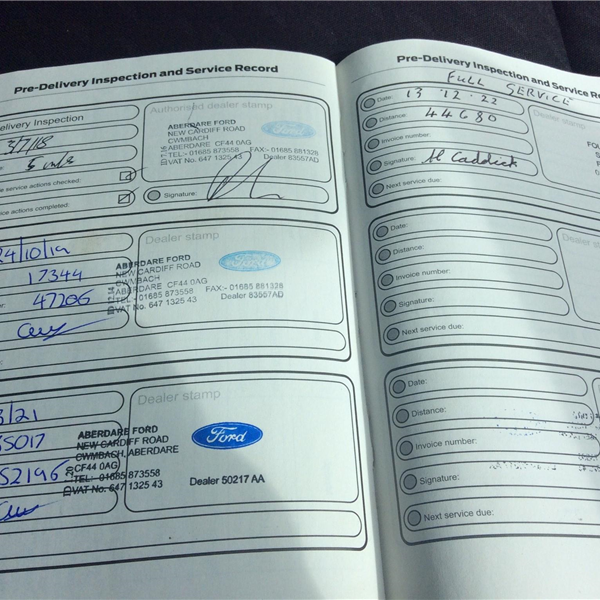 Pre-Delivery Inspection and Service Record
elivery Inspection
3/7/18
5 mls
e service actions checked:
ice actions completed:
Authorised dealer stamp
ABERDARE FORD
NEW CARDIFF ROAD
CWMBACH
ABERDARE CF44 0AG
TEL:- 01685 873558 FAX:- 01685 881328
VAT No. 647 1325 43 Dealer 83557AD
Ford
Signature:
24/10/19
17344
47206
Dealer stamp
ABERDARE FORD
NEW CARDIFF ROAD
CWMBACH
ABERDARE CF44 0AG
TEL:- 01685 873558 FAX:- 01685 881328
VAT No. 647 1325 43 Dealer 83557AD
Ford
3/21
5017
52196
Dealer stamp
ABERDARE FORD
NEW CARDIFF ROAD
CWMBACH, ABERDARE
CF44 0AG
TEL:- 01685 873558
VAT No. 647 1325 43
Ford
Dealer 50217 AA
Pre-Delivery Inspection and Service Re
FULL SERVICE
Date: 13 . 12 . 22
Distance: 44680
Invoice number:
Signature: Al Caddick
Next service due:
Dealer stamp
FOU
Date:
Distance:
Invoice number:
Signature:
Next service due:
Dealer stam
Date:
Distance:
Invoice number:
Signature:
Next service due: